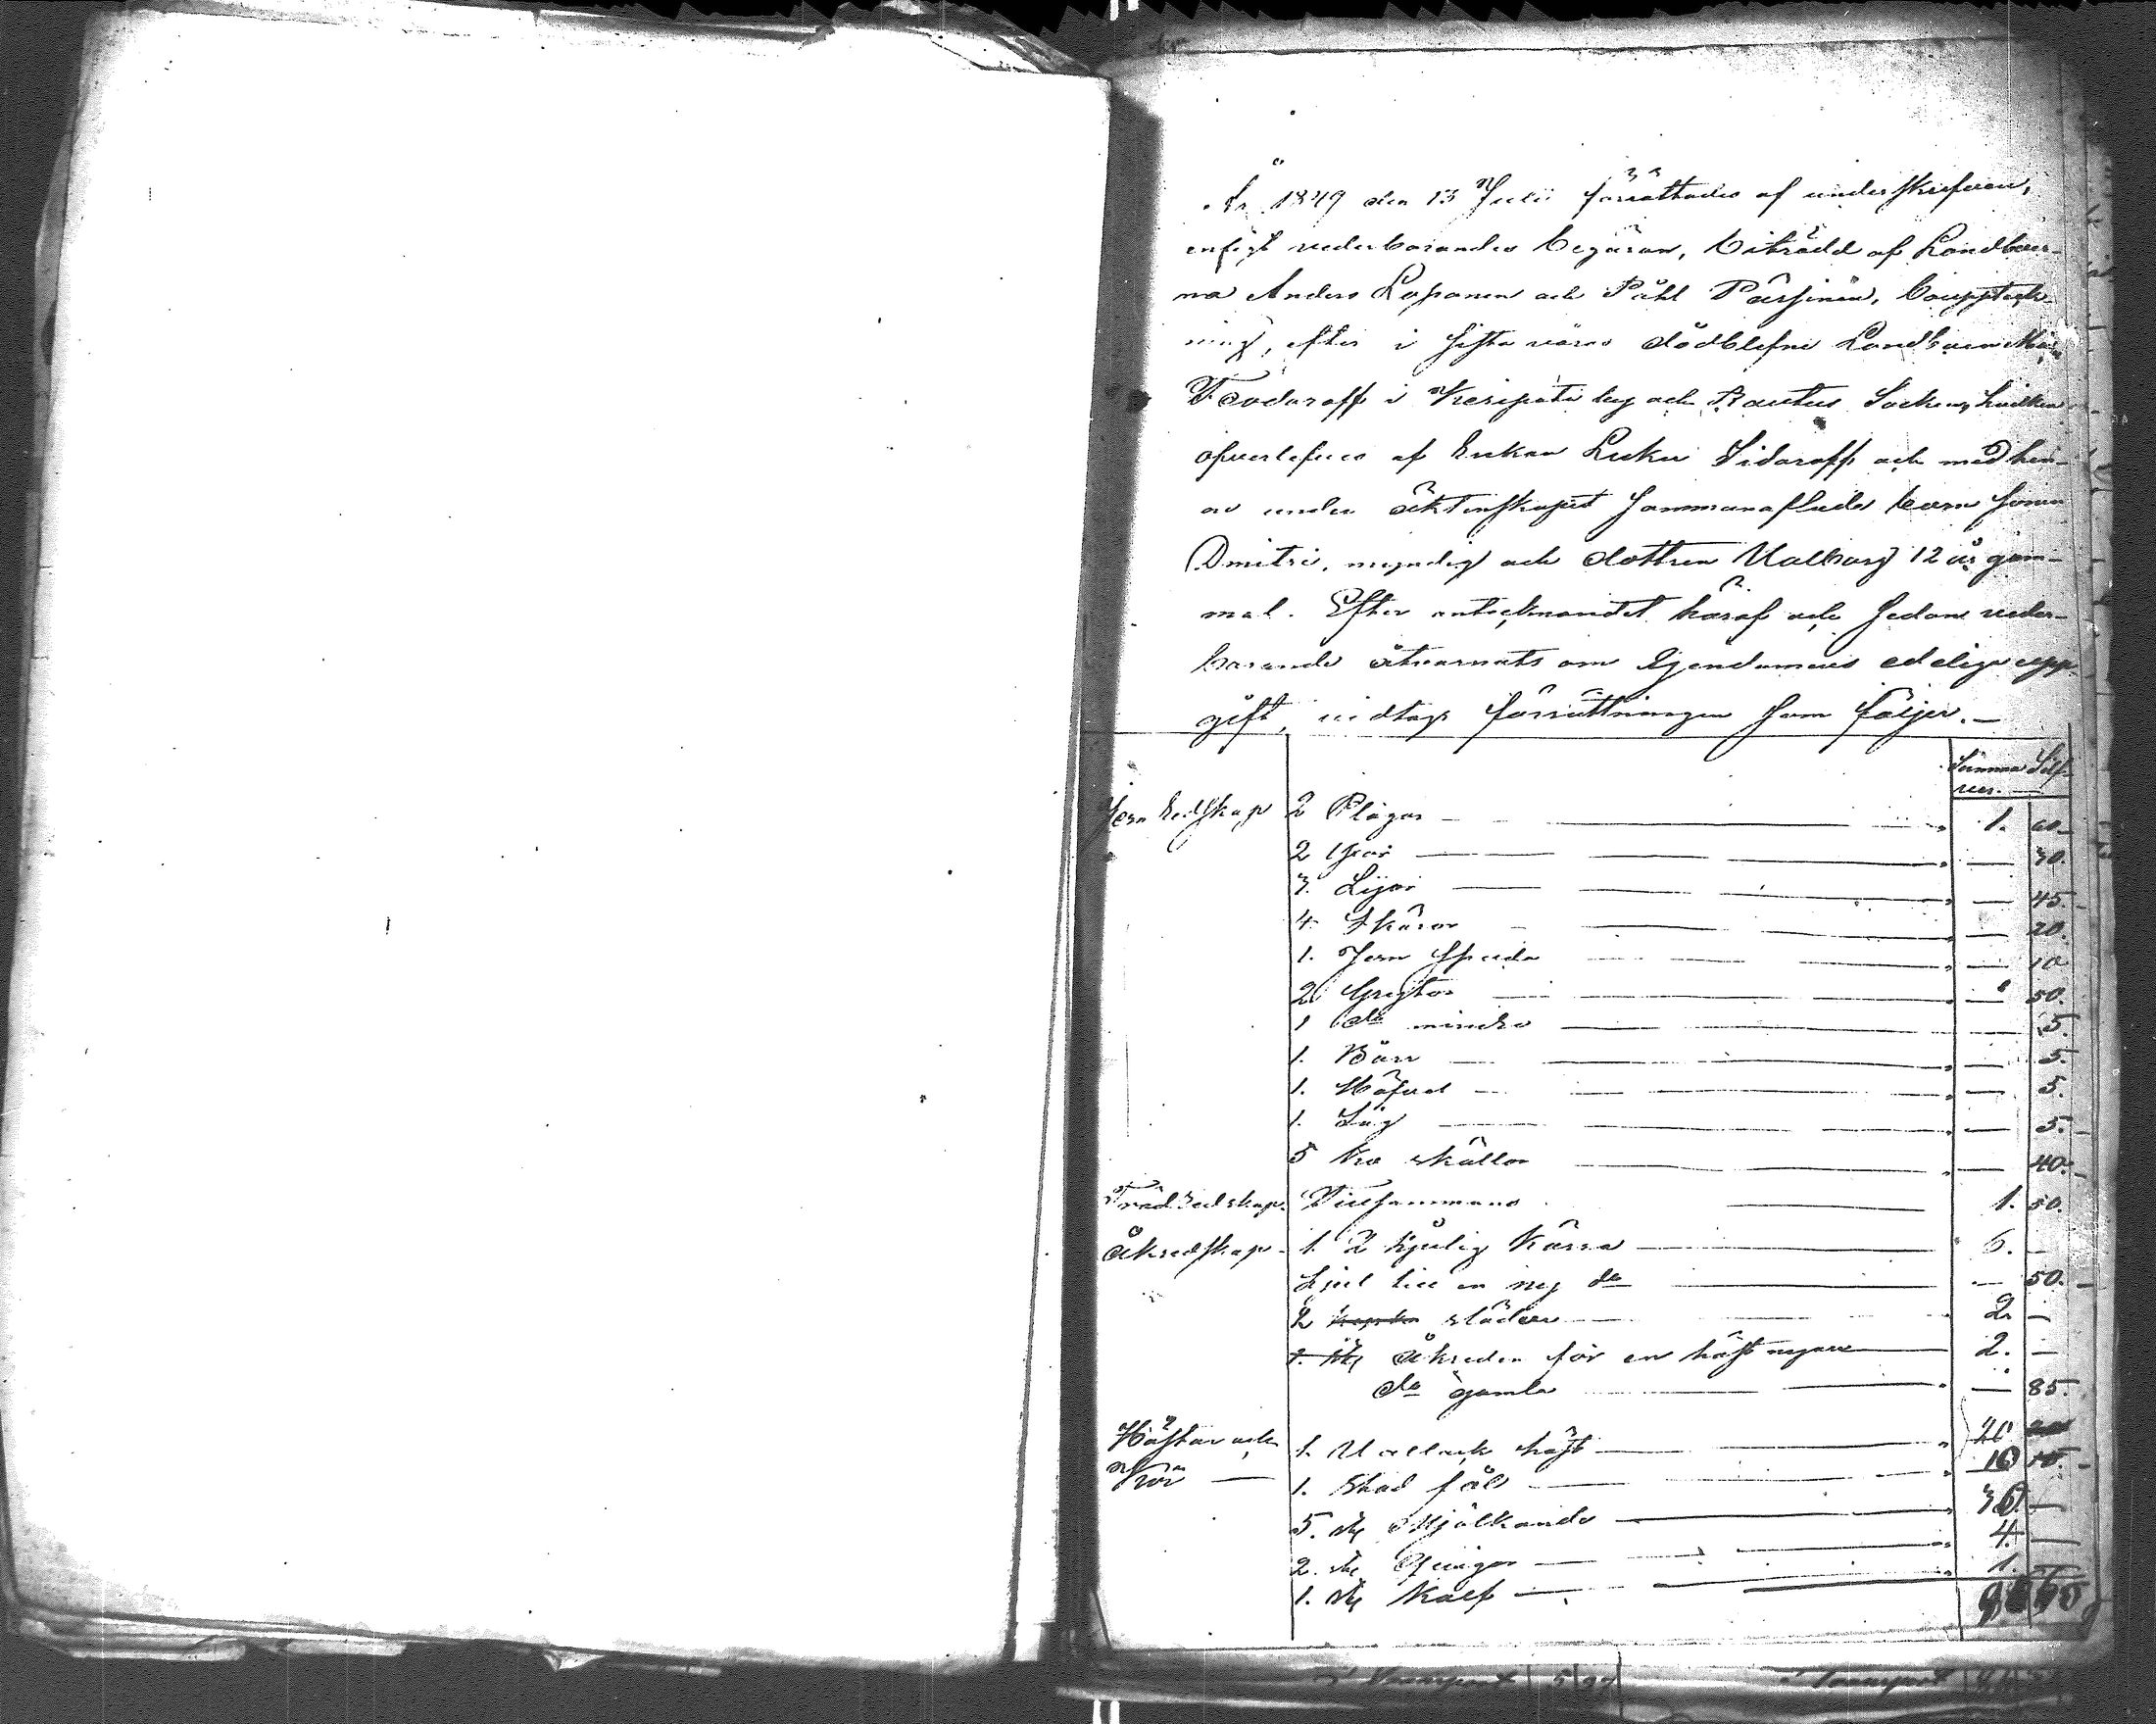 År 1849 den 13 Julii förrättades af underskrefven,
enligt vederbörandes begäran, biträdd af Landbön-
na Anders Loponen och Påhl Pärssinen, bouppteck-
ning, efter i sista våras dödblefne Landboen
Feodoroff i Keripata by och Rautus Socken, hvilken
öfverlefves af Enkan Luku Sidoroff och med hen-
ne under äktenskapet sammanaflade barn sonen
Dmitri, myndig och dottren Valborg 12 år gam-
mal. Efter antecknandet häraf och sedan veder-
börande åtvarnats om Egendomens edeliga upp-
gift, vidtogs förrättningen som följer.—
Summa Silf-
ver.
Jern Redskap 2 Plogar 1. 60.
2 Yxor 30.
3. Lijor 45.
4. Skäror 20.
1. Jern Spada 10
2 Grytor 50.
1 do mindre 5.
1. Bårr 5.
1. Höfvel 5.
1. Såg 5.
5 Ko skällor 40.
Träd Redskap. Tillsammans 1. 50.
Åkredskap 1. 2 hjulig Kärra 6. —
Hjul till en ny do — 50.
2 slädar 2. —
Åkreden för en häst nyare 2. —
do gamla — 85.
Hästar och 1. Vallack häst 20
Kor 1. Stod föl 10
5. st Mjölkande 30. —
2. st Qvigor 4. —
1. st Kalf 1.
Transport Transport